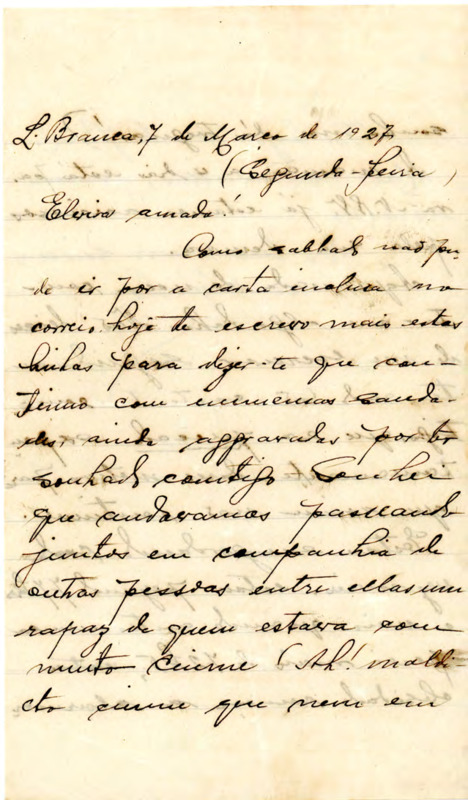 L. Branca, 7 de Março de 1927
(Segunda-feira)
Elvira amada!
Como sabbado não pu-
de ir por a carta inclusa no
correio, hoje te escrevo mais estas
linhas para dizer-te que con-
tinúo com immensas sauda-
des, ainda aggravadas por ter
sonhado comtigo. Sonhei
que andavamos passeando
juntos em companhia de
outras pessoas entre ellas um
rapaz de quem estava com
muito ciume (Ah! maldi-
cto ciume que nem em